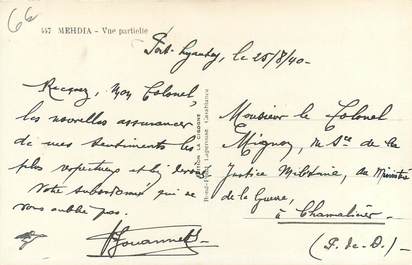 66
447 MEHDIA - Vue partielle
Port-Lyautey, le 25/8/40-
Recevez, Mon Colonel,
les nouvelles assurances
de mes sentiments les
plus respectueux et
Votre subordonné qui ne
vous oublie pas.
Jouannet
EDITION LA CIGOGNE
Monsieur le Colonel
Mignot, au Sce de la
Justice Militaire, au Ministère
de la Guerre,
à Chamalières
(P. de D.)